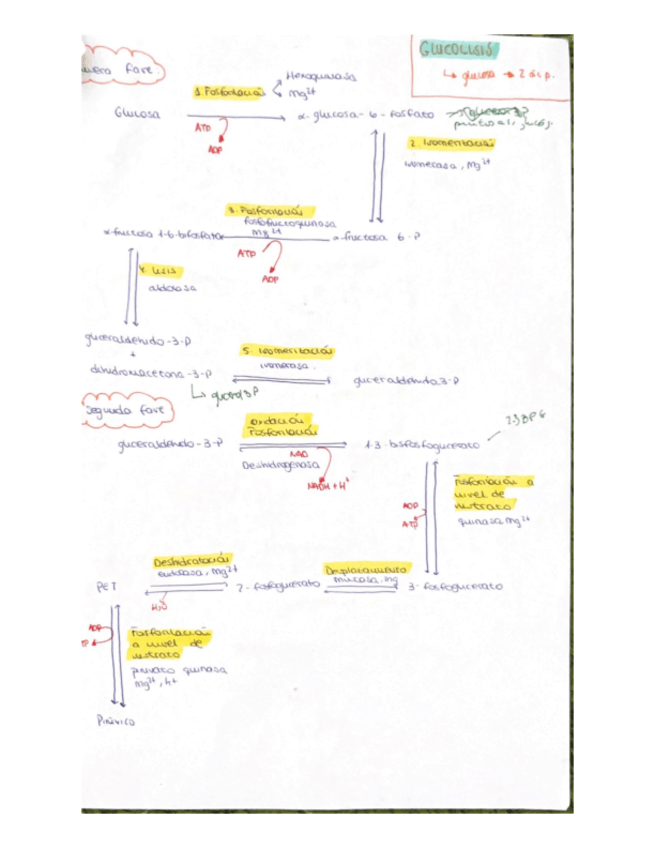 GLUCOLISIS
↳ glucosa → 2 ác p.
fase.
1. Fosforilación
Hexoquinasa
Mg2+
Glucosa
α-glucosa-6-fosfato
ATP
ADP
2. Isomerización
isomerasa, Mg2+
3. Fosforilación
fosfofructoquinasa
Mg2+
α-fructosa 1-6-bifosfato
α-fructosa 6-P
ATP
ADP
4. Lisis
aldolasa
gliceraldehido-3-P
+
dihidroxiacetona-3-P
↳ glicerol 3P
5. Isomerización
isomerasa.
gliceraldehido 3-P
Segunda fase
oxidación
Fosforilación
gliceraldehido-3-P
NAD
Deshidrogenasa
NADH + H+
1-3-bisfosfoglicerato
2-3 BPG
Fosforilación a
nivel de
sustrato
quinasa Mg2+
ADP
ATP
Deshidratación
enolasa, Mg2+
Desplazamiento
mutasa, Mg
PET
2-fosfoglicerato
3-fosfoglicerato
H2O
ADP
TP
Fosforilación
a nivel de
sustrato
piruvato quinasa
Mg2+, k+
Pirúvico